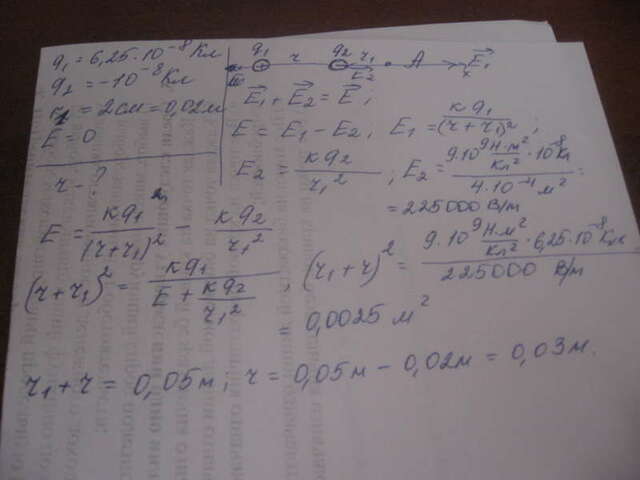 q₁ = 6,25·10⁻⁸ Кл
q₂ = −10⁻⁸ Кл
r₁ = 2 см = 0,02 м
E = 0
r - ?
q₁ r q₂ r₁ A E⃗₁
E⃗₂ x
E⃗₁ + E⃗₂ = E⃗ ;
E = E₁ − E₂, E₁ = кq₁/(r + r₁)² ;
E₂ = кq₂/r₁² ; E₂ = 9·10⁹ Н·м²/Кл² · 10⁻⁸ Кл / 4·10⁻⁴ м² =
= 225000 В/м
E = кq₁/(r + r₁)² − кq₂/r₁²
(r + r₁)² = кq₁/(E + кq₂/r₁²) , (r₁ + r)² = 9·10⁹ Н·м²/Кл² · 6,25·10⁻⁸ Кл / 225000 В/м
= 0,0025 м²
r₁ + r = 0,05 м ; r = 0,05 м − 0,02 м = 0,03 м.